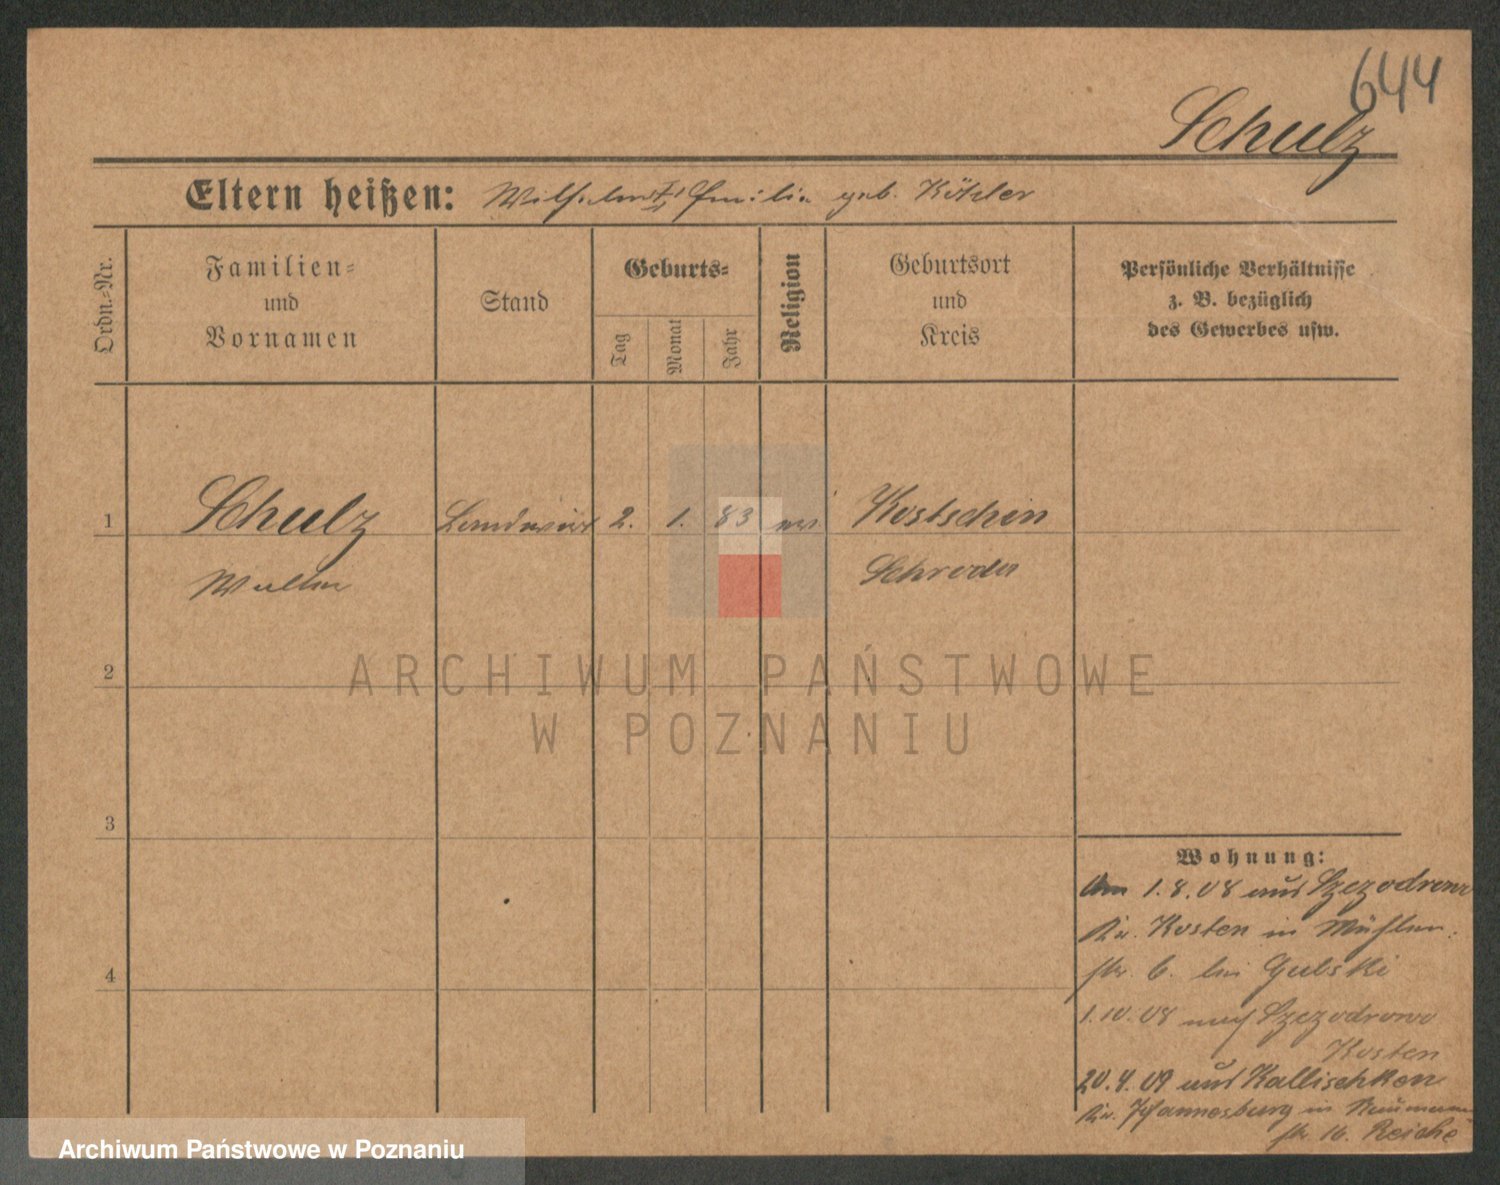 644
Schulz
Eltern heißen: Wilhelm u. Emilie geb. Köhler
Ordn.-Nr.
Familien- und Vornamen
Stand
Geburts-
Tag
Monat
Jahr
Religion
Geburtsort und Kreis
Persönliche Verhältnisse
z. B. bezüglich
des Gewerbes usw.
1 Schulz Landwirt 2. 1. 83 ev Kostschin
Walter Schroda
ARCHIWUM PAŃSTWOWE
W POZNANIU
2
3
4
Wohnung:
Am 1.8.08 aus Szczodrowo
Kr. Kosten in Mühlen-
str. 6. bei Gulski
1.10.08 nach Szczodrowo
Kosten
20.4.09 aus Kallischken
Kr. Johannesburg in Naumann
str. 16. Reiche
Archiwum Państwowe w Poznaniu